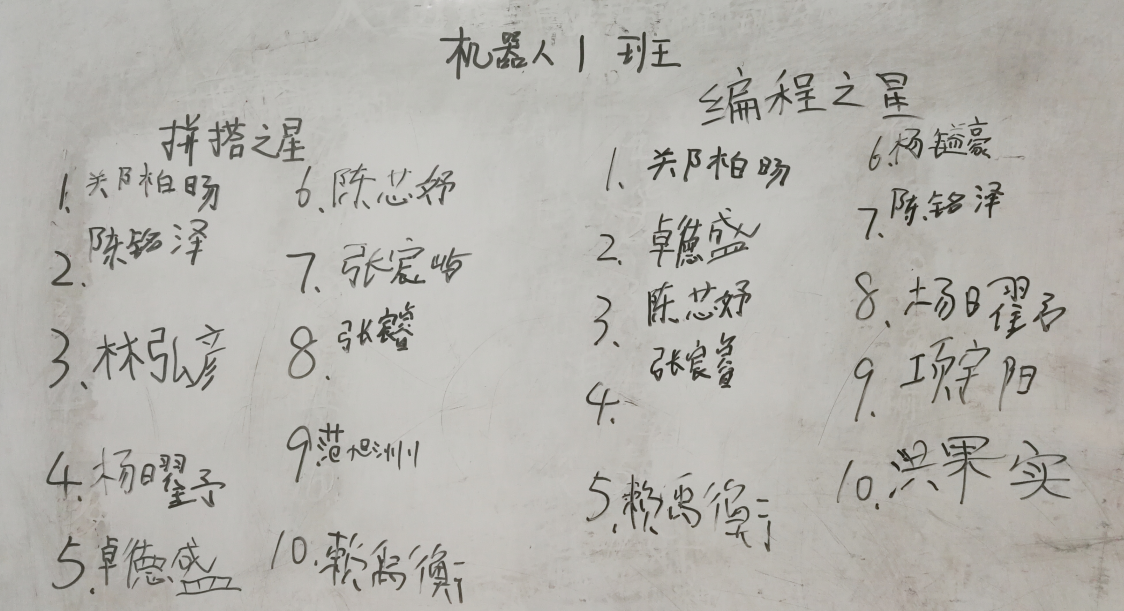 机器人1班
拼搭之星
1.郑柏旸
2.陈铭泽
3.林弘彦
4.杨曜予
5.卓德盛
6.陈芯妤
7.张宸屿
8.张宸睿
9范旭洲
10.赖禹衡
编程之星
1.郑柏旸
2.卓德盛
3.陈芯妤
4.张宸睿
5.赖禹衡
6.杨镒豪
7.陈铭泽
8.杨曜予
9.项宇阳
10.洪果实